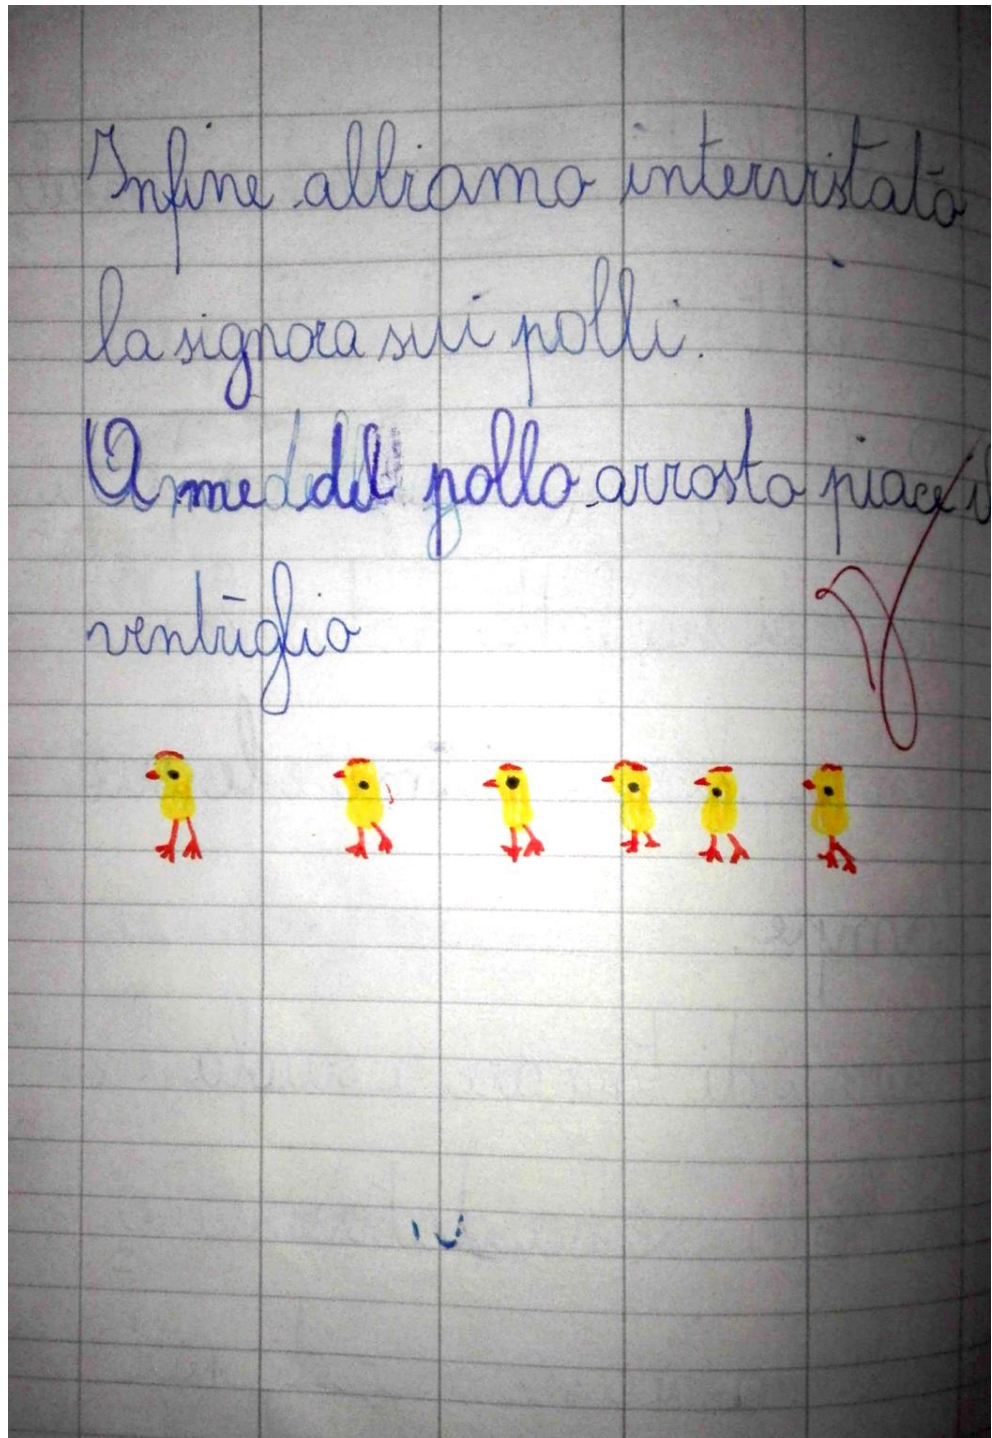 Infine abbiamo intervistato
la signora sui polli.
A me del pollo arrosto piace il
ventriglio